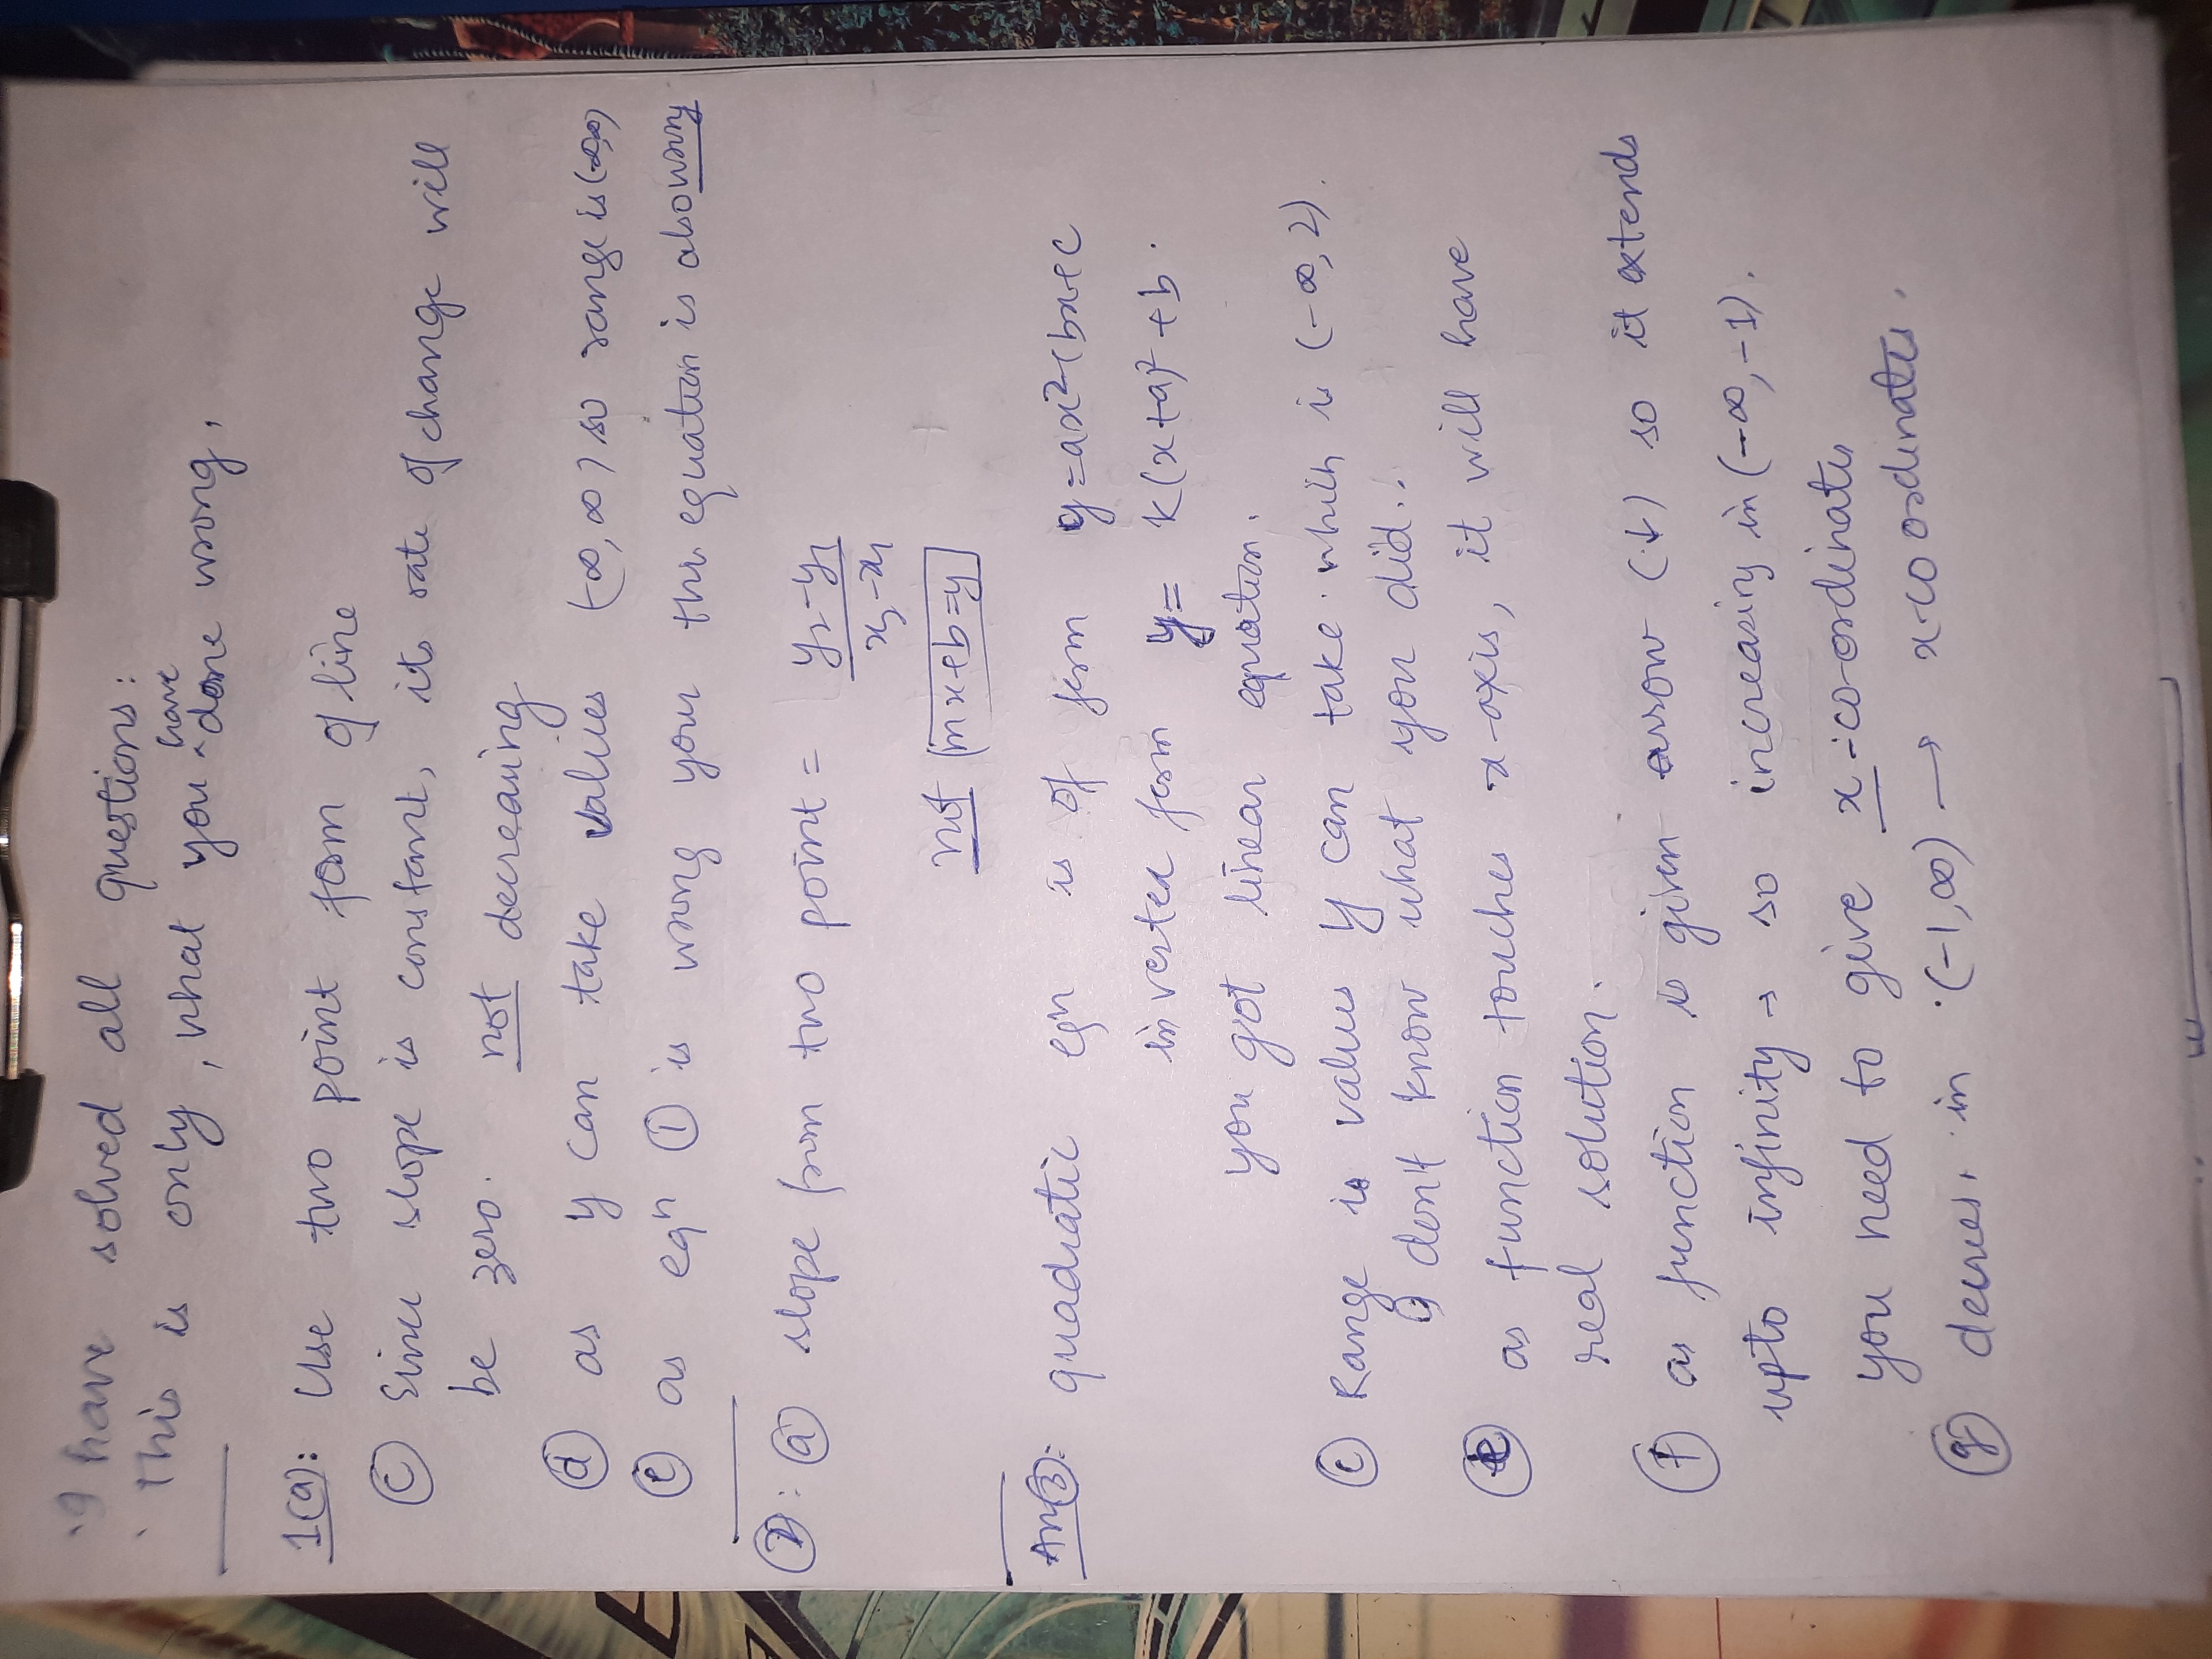 I have solved all questions:
This is only, what you have done wrong.
1(a): Use two point form of line
(c) Since slope is constant, its rate of change will
be zero. not decreasing
(d) as y can take values (-∞, ∞) so range is (-∞, ∞)
(e) as eqn (1) is wrong your this equation is also wrong
(2): (a) slope from two point = y2-y1 / x2-x1
not mx+b=y
Ans(3): quadratic eqn is of form y=ax²+bx+c
in vertex form y= k(x+a)²+b.
you got linear equation.
(c) Range is values y can take which is (-∞, 2).
I don't know what you did..
(e) as function touches x-axis, it will have
real solution.
(f) as function is given arrow (↓) so it extends
upto infinity → so increasing in (-∞, -1).
you need to give x-co-ordinates
(g) decres. in (-1, ∞) → x-coordinates.